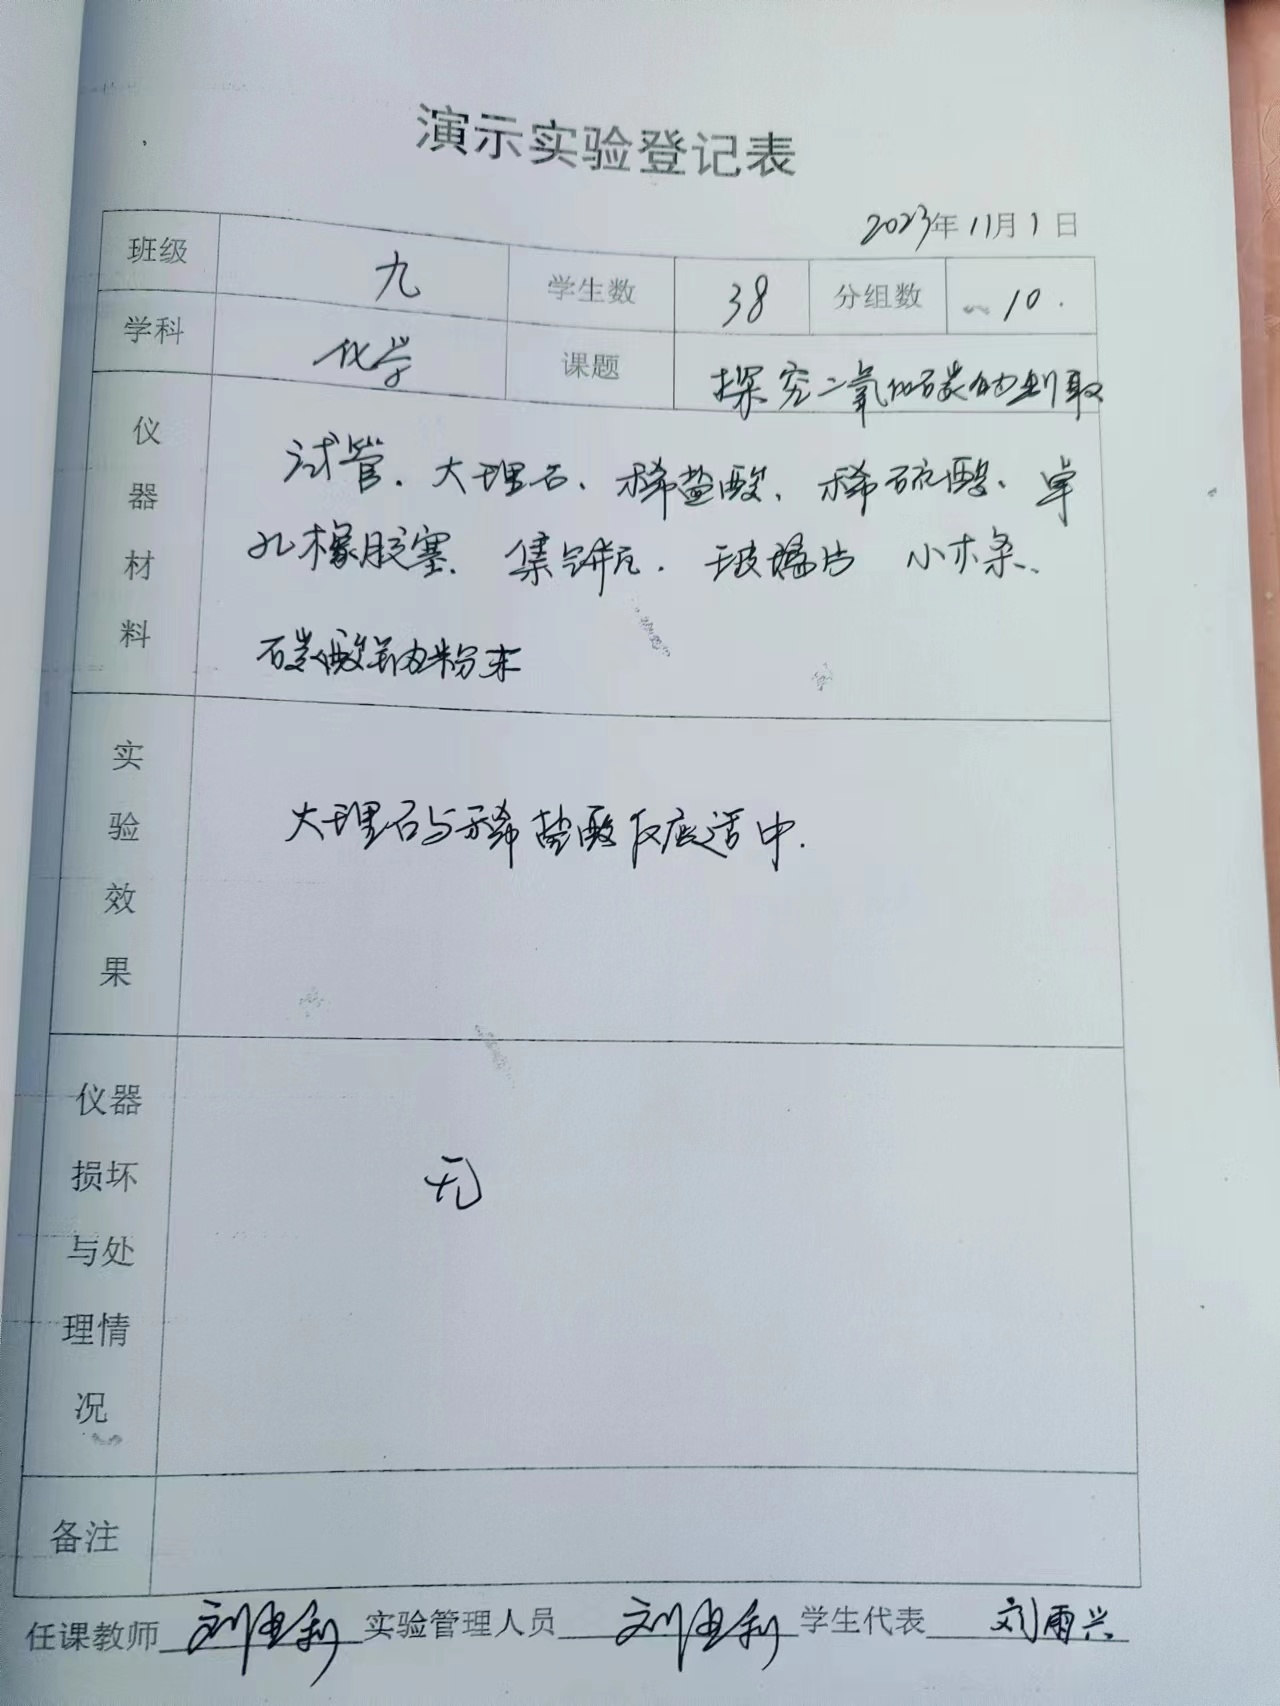 演示实验登记表
2023年11月1日
班级 九 学生数 38 分组数 10.
学科 化学 课题 探究二氧化碳的制取
仪器材料
试管、大理石、稀盐酸、稀硫酸、单
孔橡胶塞、集气瓶、玻璃片 小木条、
碳酸钠粉末
实验效果
大理石与稀盐酸反应适中.
仪器损坏与处理情况
无
备注
任课教师 实验管理人员 学生代表 刘雨兴